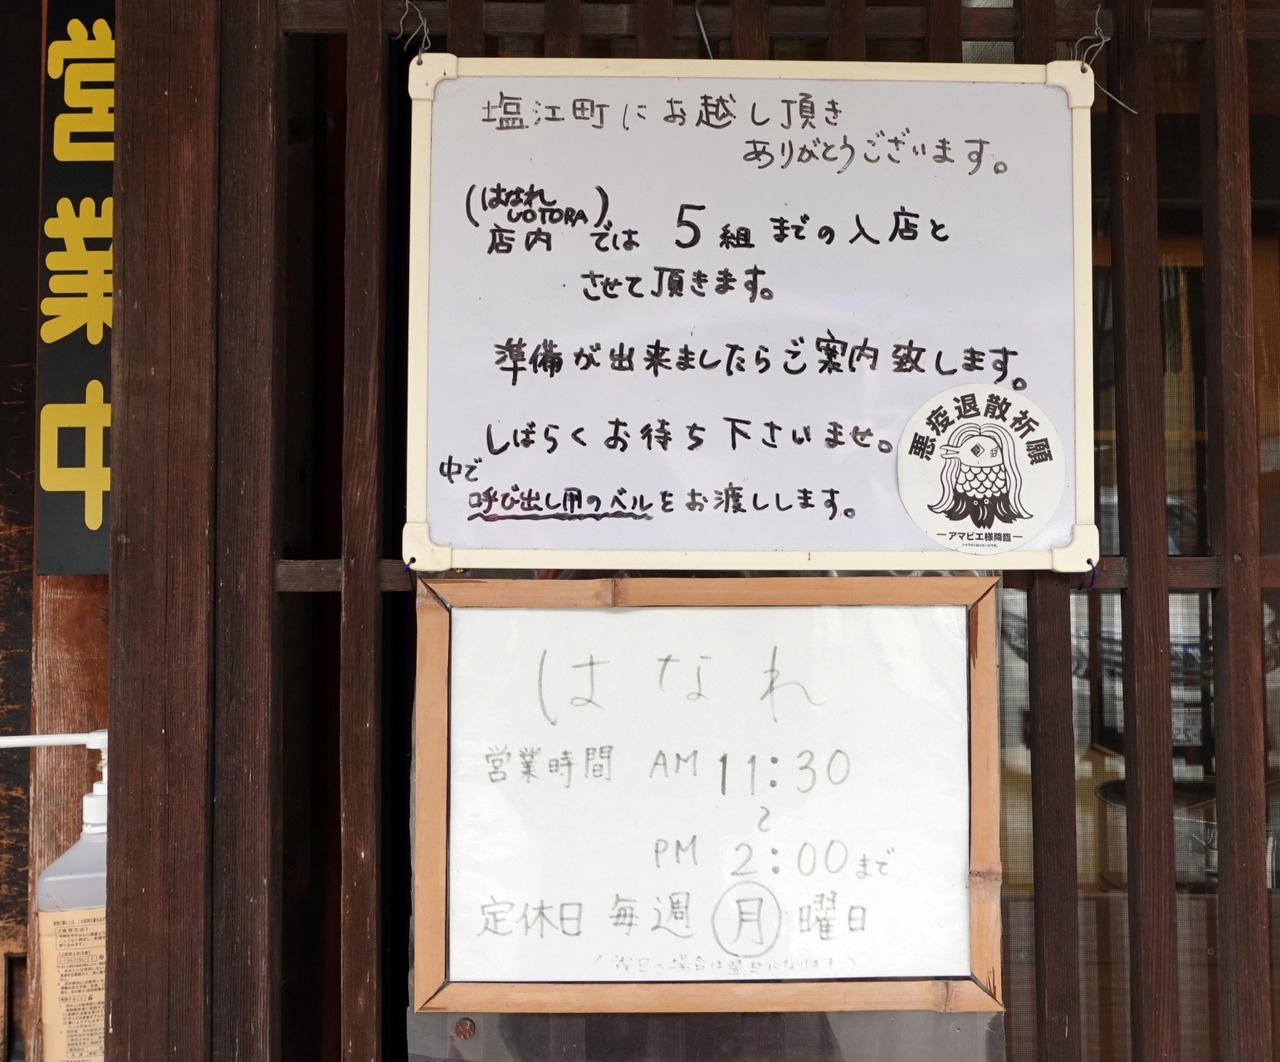 営業中
塩江町にお越し頂き
ありがとうございます。
(はなれ
UOTORA)
店内では 5組までの入店と
させて頂きます。
準備が出来ましたらご案内致します。
しばらくお待ち下さいませ。
中で
呼び出し用のベルをお渡しします。
悪疫退散祈願
―アマビエ様降臨―
はなれ
営業時間 AM 11:30
〜
PM 2:00まで
定休日 毎週 月 曜日
(祝日の場合は翌日になります)